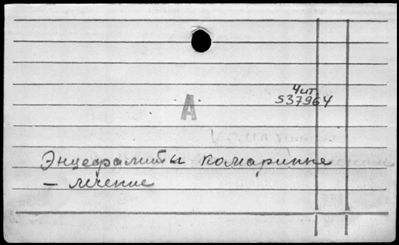 Чит.
537964
А
Энцефалиты комариные
– лечение